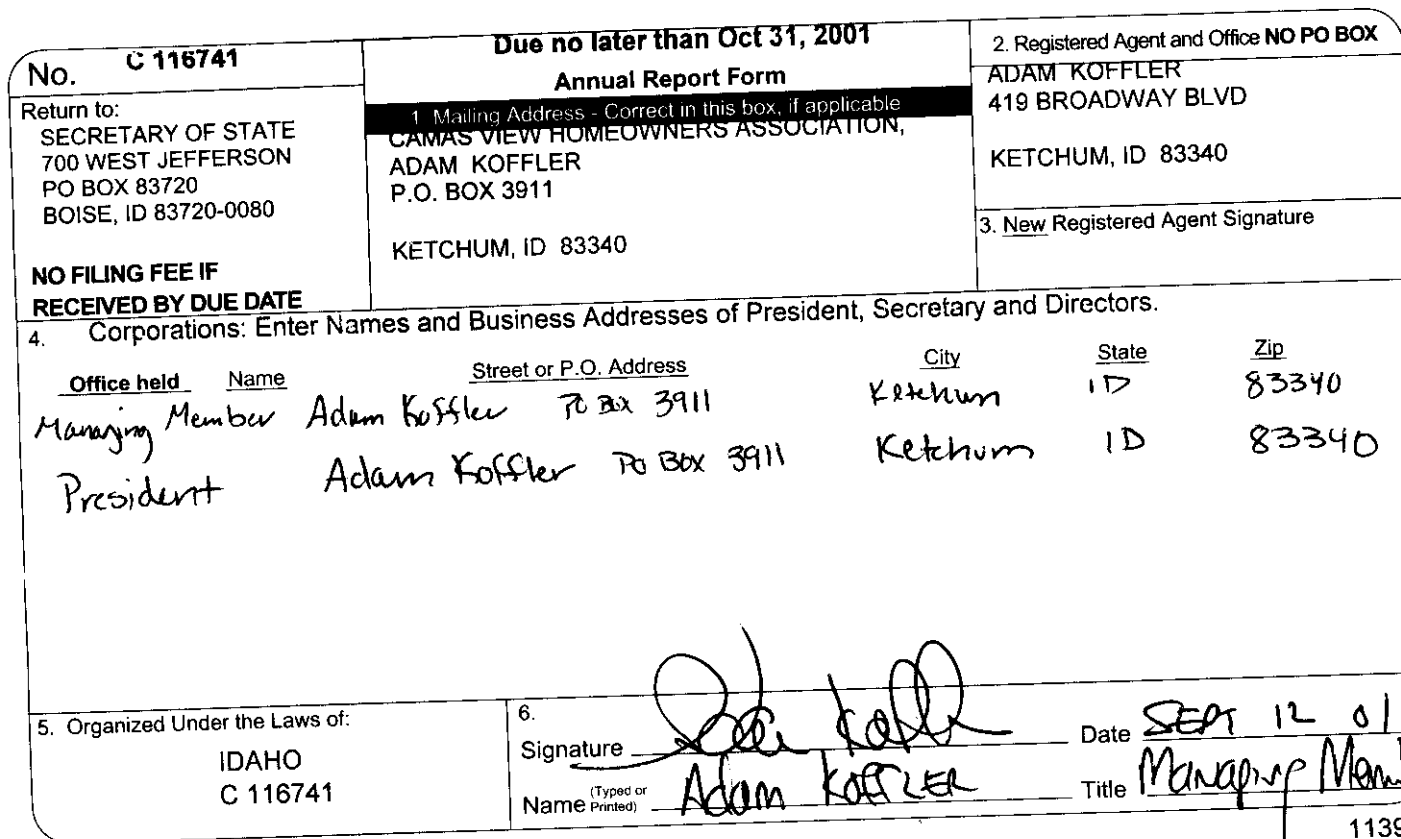 No. C 116741
Return to:
SECRETARY OF STATE
700 WEST JEFFERSON
PO BOX 83720
BOISE, ID 83720-0080
NO FILING FEE IF
RECEIVED BY DUE DATE
Due no later than Oct 31, 2001
Annual Report Form
1 Mailing Address - Correct in this box, if applicable
CAMAS VIEW HOMEOWNERS ASSOCIATION,
ADAM KOFFLER
P.O. BOX 3911
KETCHUM, ID 83340
2. Registered Agent and Office NO PO BOX
ADAM KOFFLER
419 BROADWAY BLVD
KETCHUM, ID 83340
3. New Registered Agent Signature
4. Corporations: Enter Names and Business Addresses of President, Secretary and Directors.
Office held Name Street or P.O. Address City State Zip
Managing Member Adam Koffler PO Box 3911 Ketchum ID 83340
President Adam Koffler PO Box 3911 Ketchum ID 83340
5. Organized Under the Laws of:
IDAHO
C 116741
6.
Signature Date SEPT 12 01
Name (Typed or Printed) Adam KOFFLER Title Managing Mem
1139